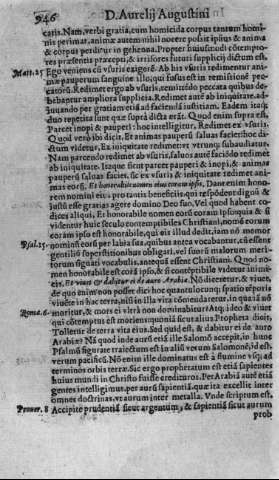 946 D. Aurelij Augustini
catis. Nam, verbi gratia, cum homicida corpus tantum homi
nis perimat, animæ autem nihil nocere possit ipsius & anima
& corpus perditur in gehenna. Propter huiusmodi cōtempto-
res præsentis præcepti, & irrisores futuri supplicij dictum est,
Matt. 25 Ego veniens cū vsuris exigerē. Ab his vsuris redimentur ani-
mæ pauperum sanguine illo, qui fusus est in remissionē pec-
catorū. Redimet ergo ab vsuris, remittēdo peccata quibus de-
bebantur ampliora supplicia. Redimet autē ab iniquitate, ad-
iuuando per gratiam etiā ad faciendā iustitiam. Eadem itaq;
duo repetita sunt quæ suprà dicta erāt. Quod enim supra est,
Parcet inopi & pauperi: hoc intelligitur, Redimet ex vsuris.
Quod verò ibi dicit, Et animas pauperū saluas faciet: hoc di-
ctum videtur, Ex iniquitate redimet: vt verunq; subaudiatur,
Nam parcendo redimet ab vsuris, saluos autē faciēdo redimet
ab iniquitate. Itaque sicut parcet pauperi & inopi, & animas
pauperū saluas faciet, sic ex vsuris & iniquitate redimet ani-
mas eorū. Et honorabile nomen eius coram ipso. Dant enim hono-
rem nomini eius pro tantis beneficijs, qui respōdent dignū &
iustū esse gratias agere domino Deo suo. Vel quod habent co-
dices aliqui, Et honorabile nomen eorū coram ipso: quia & si
videntur huic seculo contemptibiles Christiani, nomē eorum
coram ipso est honorabile, qui eis illud dedit, iam nō memor
Psal. 15. nominū eorū per labia sua, quibus antea vocabantur, cū essent
gentiliū superstitionibus obligati, vel suorū malorum meri-
torum signati vocabulis, antequā essent Christiani. Quod no-
men honorabile est corā ipso, & si contēptibile videtur inimi-
cis. Et viuet & dabitur ei de auro Arabiæ. Nō diceretur, & viuet,
de quo enim non posset dici hoc quantulocunq; spatio tēporis
viueret in hac terra, nisi in illa vita cōmendaretur, in qua iā nō
Rome. 6 moritur, & mors ei vltrà non dominabitur? Atq; ideo & viuet
qui cōtemptus est moriens: quoniā sicut alius Propheta dicit,
Tolletur de terra vita eius. Sed quid est, & dabitur ei de auro
Arabiæ? Nā quod inde aurū etiā ille Salomō accepit, in hunc
Psalmū figurate traiectum est in aliū verum Salomonē, id est,
verum pacificū. Nō enim ille dominatus est à flumine vsq; ad
terminos orbis terræ. Sic ergo prophetatum est etiā sapientes
huius mundi in Christo fuisse credituros. Per Arabiā aurē etiā
gentes intelligimus. per aurū sapientiā, quæ ita excellit inter
omnes doctrinas, vt aurum inter metalla. Vnde scriptum est,
Prouer. 8 Accipite prudentiā sicut argentum, & sapientiā sicut aurum
prob